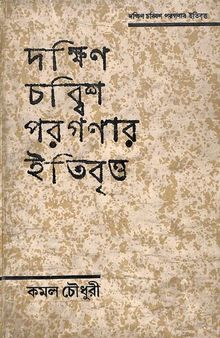 দক্ষিণ চব্বিশ পরগণার ইতিবৃত্ত
দক্ষিণ
চব্বিশ
পরগণার
ইতিবৃত্ত
কমল চৌধুরী